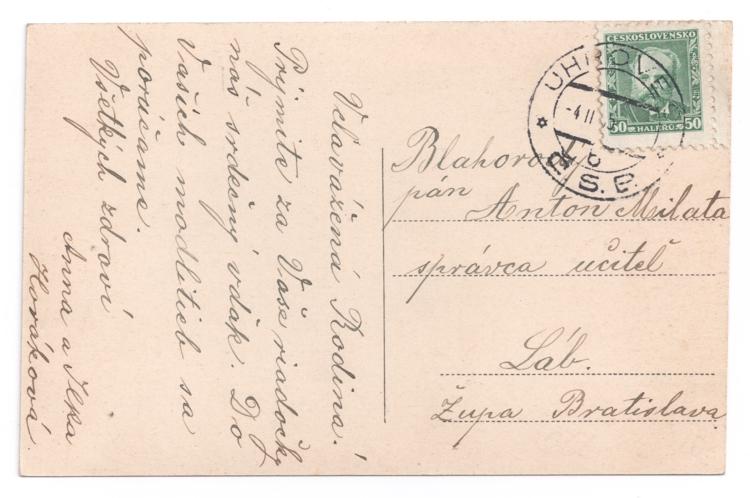 Velavážená Rodina!
Prijmite za Vaše riadočky
náš srdečný vďak. Do
Vašich modlitieb sa
porúčame.
Všetkých zdraví
Anna a Ilka
Horáková
ČESKOSLOVENSKO
50 HALÉŘŮ 50
UHROVE
-4 II
Blahorodý
pán
Anton Milata
správca učiteľ
Láb.
Župa Bratislava